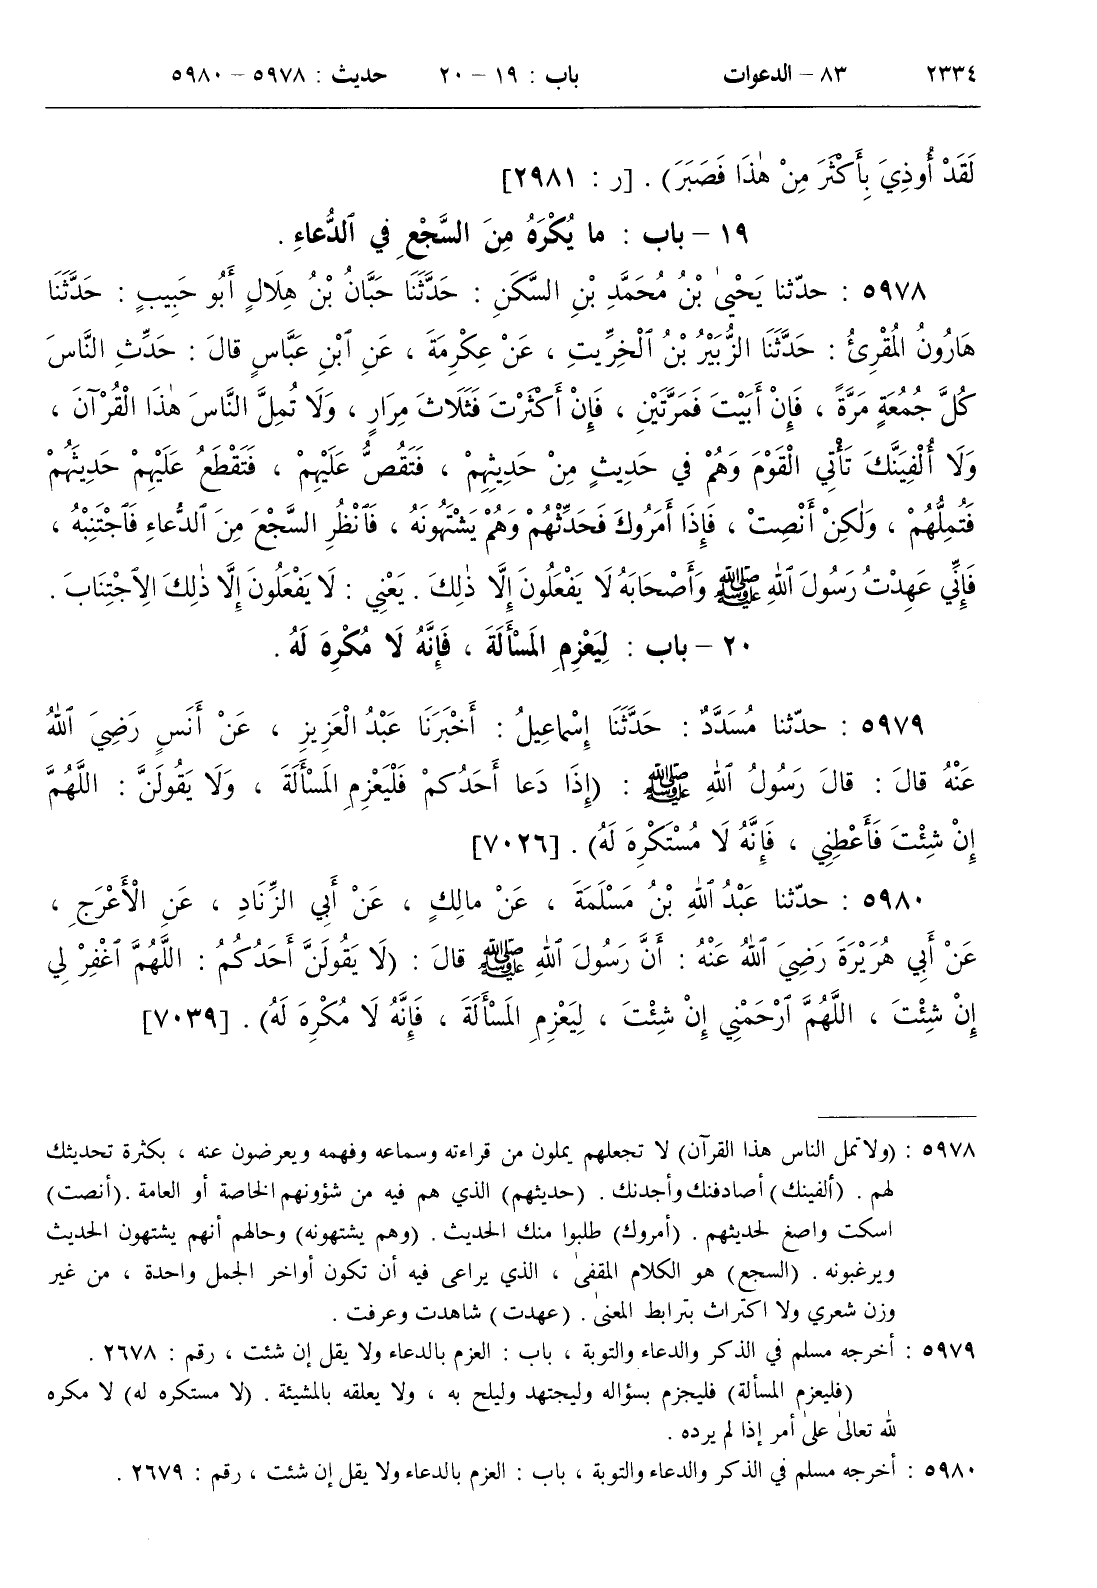 ٢٣٣٤ ٨٣ – الدعوات باب : ١٩ – ٢٠ حديث : ٥٩٧٨ – ٥٩٨٠
لَقَدْ أُوذِيَ بِأَكْثَرَ مِنْ هٰذَا فَصَبَرَ) . [ر : ٢٩٨١]
١٩ – باب : ما يُكْرَهُ مِنَ السَّجْعِ فِي ٱلدُّعاءِ .
٥٩٧٨ : حدّثنا يَحْيىٰ بْنُ مُحَمَّدِ بْنِ السَّكَنِ : حَدَّثَنَا حَبَّانُ بْنُ هِلَالٍ أَبُو حَبِيبٍ : حَدَّثَنَا
هَارُونُ المُقْرِئُ : حَدَّثَنَا الزُّبَيْرُ بْنُ ٱلْخِرِّيتِ ، عَنْ عِكْرِمَةَ ، عَنِ ٱبْنِ عَبَّاسٍ قالَ : حَدِّثِ النَّاسَ
كُلَّ جُمُعَةٍ مَرَّةً ، فَإِنْ أَبَيْتَ فَمَرَّتَيْنِ ، فَإِنْ أَكْثَرْتَ فَثَلَاثَ مِرَارٍ ، وَلَا تُمِلَّ النَّاسَ هٰذَا الْقُرْآنَ ،
وَلَا أُلْفِيَنَّكَ تَأْتِي الْقَوْمَ وَهُمْ في حَدِيثٍ مِنْ حَدِيثِهِمْ ، فَتَقُصُّ عَلَيْهِمْ ، فَتَقْطَعُ عَلَيْهِمْ حَدِيثَهُمْ
فَتُمِلُّهُمْ ، وَلٰكِنْ أَنْصِتْ ، فَإِذَا أَمَرُوكَ فَحَدِّثْهُمْ وَهُمْ يَشْتَهُونَهُ ، فَٱنْظُرِ السَّجْعَ مِنَ ٱلدُّعاءِ فَٱجْتَنِبْهُ ،
فَإِنِّي عَهِدْتُ رَسُولَ ٱللهِ ﷺ وَأَصْحَابَهُ لَا يَفْعَلُونَ إِلَّا ذٰلِكَ . يَعْنِي : لَا يَفْعَلُونَ إِلَّا ذٰلِكَ الِٱجْتِنَابَ .
٢٠ – باب : لِيَعْزِمِ المَسْأَلَةَ ، فَإِنَّهُ لَا مُكْرِهَ لَهُ .
٥٩٧٩ : حدّثنا مُسَدَّدٌ : حَدَّثَنَا إِسْماعِيلُ : أَخْبَرَنَا عَبْدُ الْعَزِيزِ ، عَنْ أَنَسٍ رَضِيَ ٱللهُ
عَنْهُ قالَ : قالَ رَسُولُ ٱللهِ ﷺ : (إِذَا دَعا أَحَدُكمْ فَلْيَعْزِمِ المَسْأَلَةَ ، وَلَا يَقُولَنَّ : اللَّهُمَّ
إِنْ شِئْتَ فَأَعْطِنِي ، فَإِنَّهُ لَا مُسْتَكْرِهَ لَهُ) . [٧٠٢٦]
٥٩٨٠ : حدّثنا عَبْدُ ٱللهِ بْنُ مَسْلَمَةَ ، عَنْ مالِكٍ ، عَنْ أَبِي الزِّنَادِ ، عَنِ الْأَعْرَجِ ،
عَنْ أَبِي هُرَيْرَةَ رَضِيَ ٱللهُ عَنْهُ : أَنَّ رَسُولَ ٱللهِ ﷺ قالَ : (لَا يَقُولَنَّ أَحَدُكُمُ : اللَّهُمَّ ٱغْفِرْ لِي
إِنْ شِئْتَ ، اللَّهُمَّ ٱرْحَمْنِي إِنْ شِئْتَ ، لِيَعْزِمِ المَسْأَلَةَ ، فَإِنَّهُ لَا مُكْرِهَ لَهُ) . [٧٠٣٩]
٥٩٧٨ : (ولا تمل الناس هذا القرآن) لا تجعلهم يملون من قراءته وسماعه وفهمه ويعرضون عنه ، بكثرة تحديثك
لهم . (ألفينك) أصادفنك وأجدنك . (حديثهم) الذي هم فيه من شؤونهم الخاصة أو العامة .(أنصت)
اسكت واصغ لحديثهم . (أمروك) طلبوا منك الحديث . (وهم يشتهونه) وحالهم أنهم يشتهون الحديث
ويرغبونه . (السجع) هو الكلام المقفىٰ ، الذي يراعى فيه أن تكون أواخر الجمل واحدة ، من غير
وزن شعري ولا اكتراث بترابط المعنىٰ . (عهدت) شاهدت وعرفت .
٥٩٧٩ : أخرجه مسلم في الذكر والدعاء والتوبة ، باب : العزم بالدعاء ولا يقل إن شئت ، رقم : ٢٦٧٨ .
(فليعزم المسألة) فليجزم بسؤاله وليجتهد وليلح به ، ولا يعلقه بالمشيئة . (لا مستكره له) لا مكره
لله تعالىٰ علىٰ أمر إذا لم يرده .
٥٩٨٠ : أخرجه مسلم في الذكر والدعاء والتوبة ، باب : العزم بالدعاء ولا يقل إن شئت ، رقم : ٢٦٧٩ .